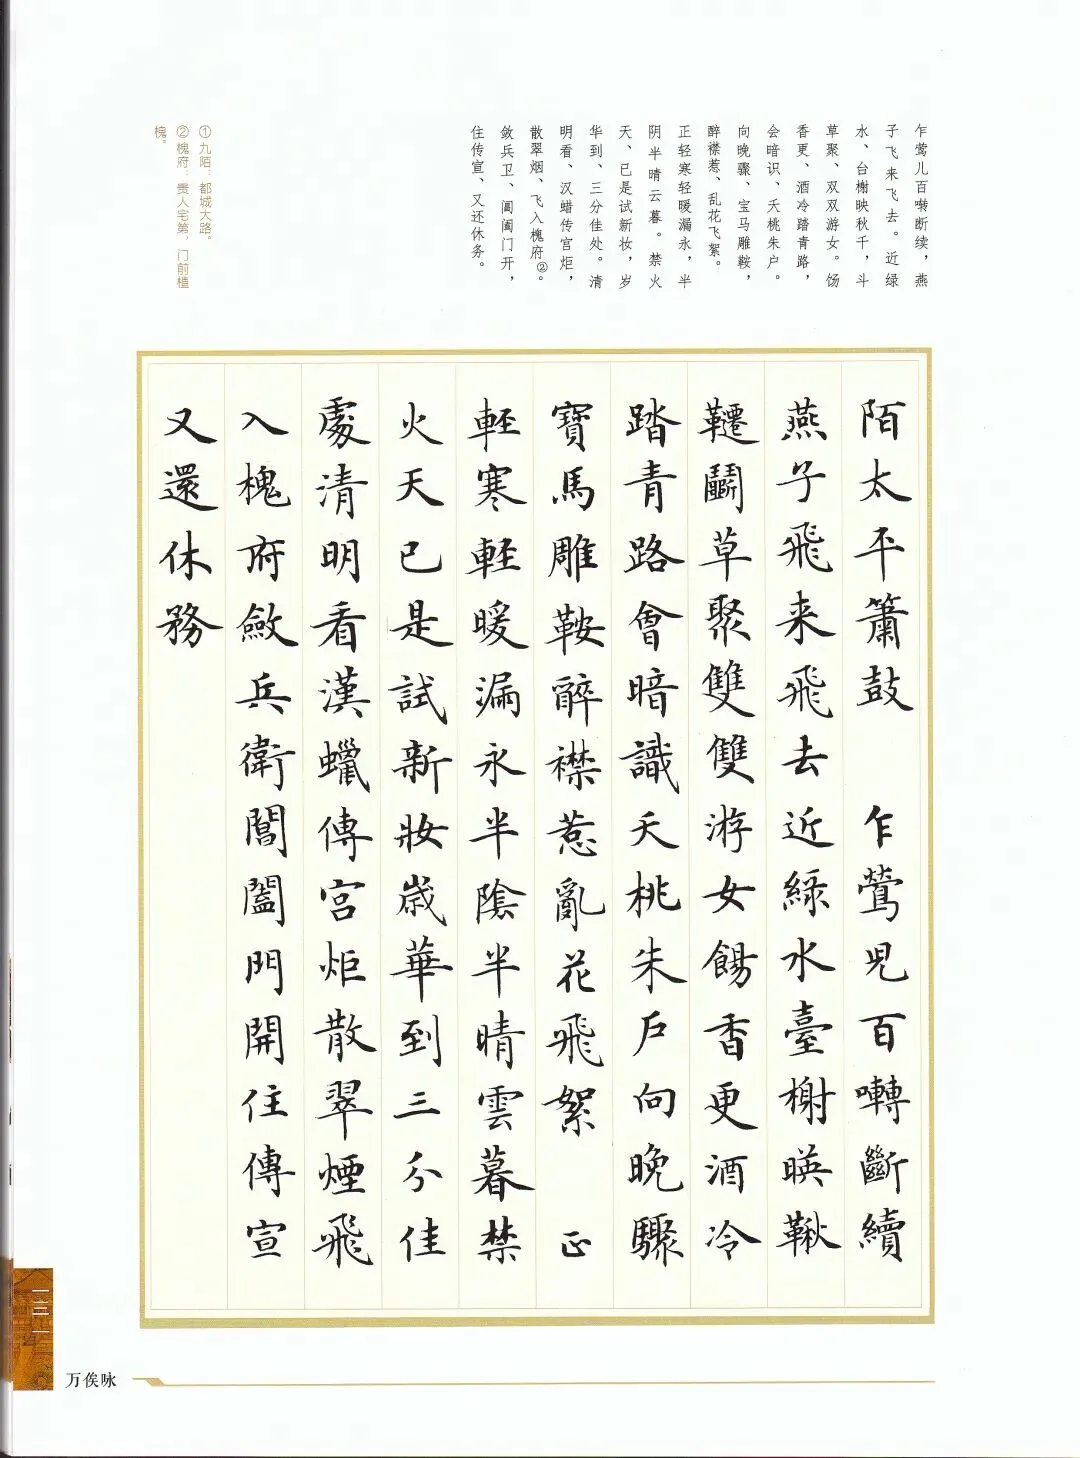 乍莺儿百啭断续，燕
子飞来飞去。近绿
水、台榭映秋千，斗
草聚、双双游女。饧
香更、酒冷踏青路，
会暗识、夭桃朱户。
向晚骤、宝马雕鞍，
醉襟惹、乱花飞絮。
正轻寒轻暖漏永，半
阴半晴云暮。禁火
天、已是试新妆，岁
华到、三分佳处。清
明看、汉蜡传宫炬，
散翠烟、飞入槐府②。
敛兵卫、阊阖门开，
住传宣、又还休务。
①九陌：都城大路。
②槐府：贵人宅第，门前植
槐。
陌太平簫鼓 乍鶯児百囀斷續
燕子飛来飛去近緑水臺榭暎鞦
韆鬭草聚雙雙游女餳香更酒冷
踏青路會暗識夭桃朱户向晚驟
寶馬雕鞍醉襟惹亂花飛絮 正
軽寒軽暖漏永半陰半晴雲暮禁
火天已是試新妝歳華到三分佳
處清明看漢蠟傳宫炬散翠煙飛
入槐府斂兵衛閶闔門開住傳宣
又還休務
一三一
万俟咏